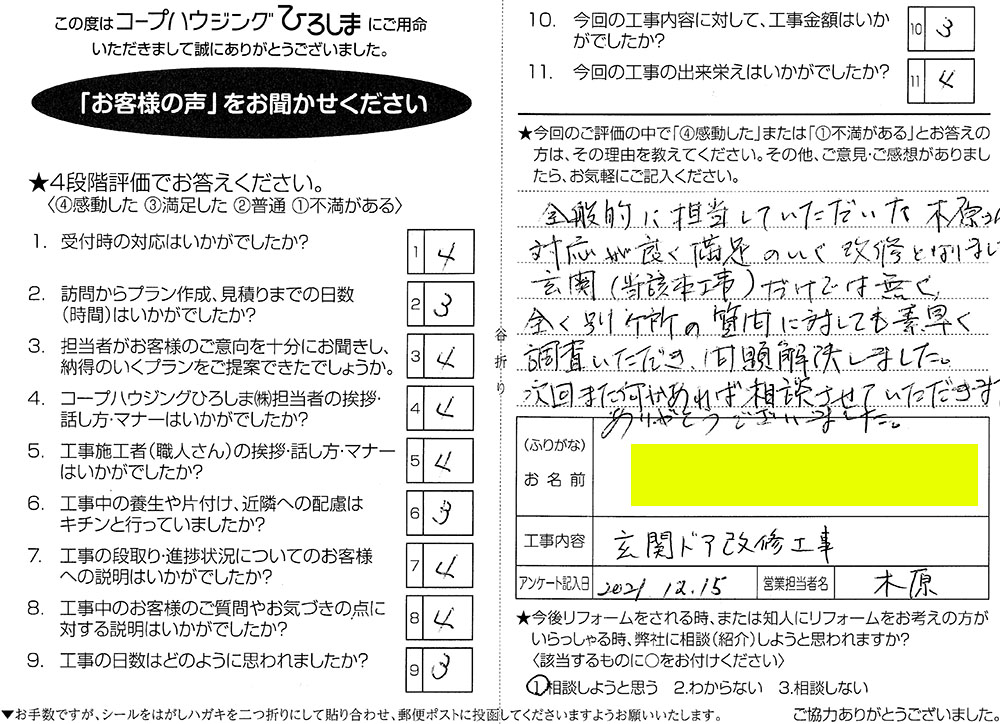 この度はコープハウジングひろしまにご用命
いただきまして誠にありがとうございました。
「お客様の声」をお聞かせください
★4段階評価でお答えください。
〈④感動した ③満足した ②普通 ①不満がある〉
1. 受付時の対応はいかがでしたか?
1 4
2. 訪問からプラン作成、見積りまでの日数
(時間)はいかがでしたか?
2 3
3. 担当者がお客様のご意向を十分にお聞きし、
納得のいくプランをご提案できたでしょうか。
3 4
4. コープハウジングひろしま㈱担当者の挨拶・
話し方・マナーはいかがでしたか?
4 4
5. 工事施工者(職人さん)の挨拶・話し方・マナー
はいかがでしたか?
5 4
6. 工事中の養生や片付け、近隣への配慮は
キチンと行っていましたか?
6 3
7. 工事の段取り・進捗状況についてのお客様
への説明はいかがでしたか?
7 4
8. 工事中のお客様のご質問やお気づきの点に
対する説明はいかがでしたか?
8 4
9. 工事の日数はどのように思われましたか?
9 3
▼お手数ですが、シールをはがしハガキを二つ折りにして貼り合わせ、郵便ポストに投函してくださいますようお願いいたします。
谷折り
10. 今回の工事内容に対して、工事金額はいか
がでしたか?
10 3
11. 今回の工事の出来栄えはいかがでしたか?
11 4
★今回のご評価の中で「④感動した」または「①不満がある」とお答えの
方は、その理由を教えてください。その他、ご意見・ご感想がありまし
たら、お気軽にご記入ください。
全般的に担当していただいた木原さん
対応が良く満足のいく改修となりまし
玄関(当該本工事)だけでは無く、
全く別ヶ所の質問に対しても素早く
調査いただき、問題解決しました。
次回また何かあれば相談させていただきます
ありがとうございました。
(ふりがな)
お名前
工事内容 玄関ドア改修工事
アンケート記入日 2021.12.15 営業担当者名 木原
★今後リフォームをされる時、または知人にリフォームをお考えの方が
いらっしゃる時、弊社に相談(紹介)しようと思われますか?
〈該当するものに○をお付けください〉
①相談しようと思う 2.わからない 3.相談しない
ご協力ありがとうございました。